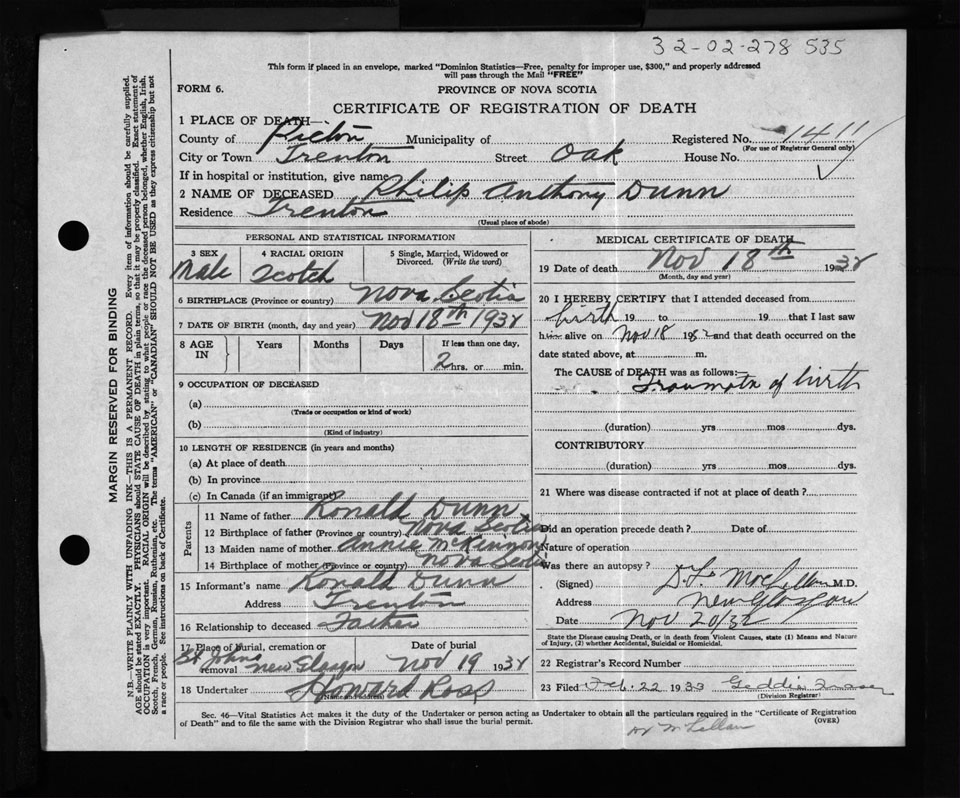 32-02-278 535
This form if placed in an envelope, marked "Dominion Statistics—Free, penalty for improper use, $300," and properly addressed
will pass through the Mail "FREE"
FORM 6.
PROVINCE OF NOVA SCOTIA
CERTIFICATE OF REGISTRATION OF DEATH
1 PLACE OF DEATH—
County of Pictou Municipality of Registered No. 1411
(For use of Registrar General only)
City or Town Trenton Street Oak House No.
If in hospital or institution, give name
2 NAME OF DECEASED Philip Anthony Dunn
Residence Trenton
(Usual place of abode)
PERSONAL AND STATISTICAL INFORMATION
3 SEX
Male
4 RACIAL ORIGIN
Scotch
5 Single, Married, Widowed or
Divorced. (Write the word)
6 BIRTHPLACE (Province or country) Nova Scotia
7 DATE OF BIRTH (month, day and year) Nov 18th 1932
8 AGE
IN
Years Months Days If less than one day,
2 hrs. or min.
9 OCCUPATION OF DECEASED
(a)
(Trade or occupation or kind of work)
(b)
(Kind of industry)
10 LENGTH OF RESIDENCE (in years and months)
(a) At place of death
(b) In province
(c) In Canada (if an immigrant)
Parents
11 Name of father Ronald Dunn
12 Birthplace of father (Province or country) Nova Scotia
13 Maiden name of mother Annie McKinnon
14 Birthplace of mother (Province or country) Nova Scotia
15 Informant's name Ronald Dunn
Address Trenton
16 Relationship to deceased Father
17 Place of burial, cremation or Date of burial
removal St Johns New Glasgow Nov 19 1932
18 Undertaker Howard Ross
(Name and address)
MEDICAL CERTIFICATE OF DEATH
19 Date of death Nov 18th 1932
(Month, day and year)
20 I HEREBY CERTIFY that I attended deceased from
birth 19 to 19 that I last saw
him alive on Nov 18 1932 and that death occurred on the
date stated above, at m.
The CAUSE of DEATH was as follows:—
Traumata of birth
(duration) yrs mos dys.
CONTRIBUTORY
(duration) yrs mos dys.
21 Where was disease contracted if not at place of death?
Did an operation precede death? Date of
Nature of operation
Was there an autopsy?
(Signed) M.D.
Address New Glasgow
Date Nov 20/32
State the Disease causing Death, or in death from Violent Causes, state (1) Means and Nature
of Injury, (2) whether Accidental, Suicidal or Homicidal.
22 Registrar's Record Number
23 Filed Feb. 22 1933
(Division Registrar)
Sec. 46—Vital Statistics Act makes it the duty of the Undertaker or person acting as Undertaker to obtain all the particulars required in the "Certificate of Registration
of Death" and to file the same with the Division Registrar who shall issue the burial permit.
(OVER)
MARGIN RESERVED FOR BINDING
N.B.—WRITE PLAINLY WITH UNFADING INK—THIS IS A PERMANENT RECORD. Every item of information should be carefully supplied.
AGE should be stated EXACTLY. PHYSICIANS should STATE CAUSE OF DEATH in plain terms, so that it may be properly classified. Exact statement of
OCCUPATION is very important. RACIAL ORIGIN will be described by stating to what people or race the deceased person belonged, whether English, Irish,
Scotch, French, German, Russian, Ruthenian, etc. The terms "AMERICAN" or "CANADIAN" SHOULD NOT BE USED as they express citizenship but not
a race or people. See instructions on back of Certificate.